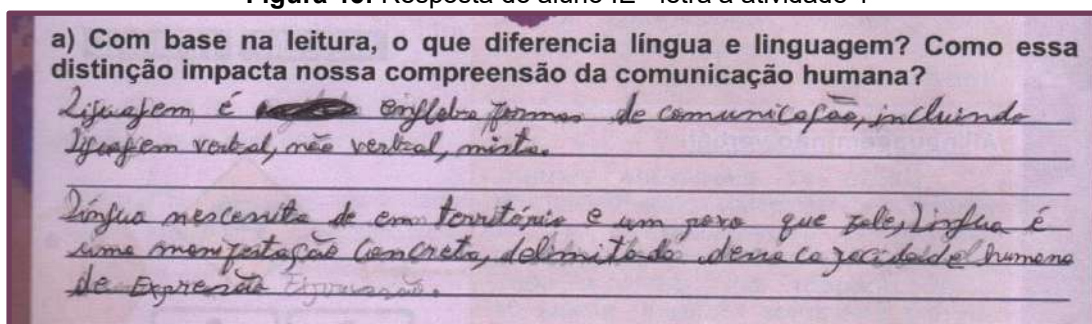 Figura 13: Resposta do aluno IE - letra a atividade 1
a) Com base na leitura, o que diferencia língua e linguagem? Como essa
distinção impacta nossa compreensão da comunicação humana?
Liguagem é englobra formas de comunicação, incluindo
liguagem verbal, não verbal, mista.
Língua nescenita de em território e um povo que fale, Língua é
uma manifestação concreta, delimitada dessa capacidade humana
de Expressão